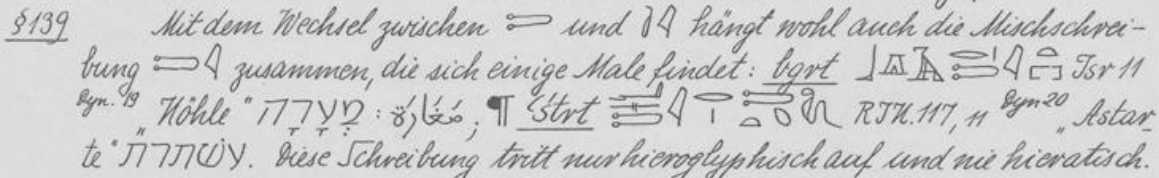 §139 Mit dem Wechsel zwischen und hängt wohl auch die Mischschrei-
bung zusammen, die sich einige Male findet: bgrt Isr 11
Dyn. 19 „Höhle“ מְעָרָה : مَغَارَة ; ¶ ʿstrt 117, 11 Dyn 20 „Astar-
te“ עשתרת. Diese Schreibung tritt nur hieroglyphisch auf und nie hieratisch.